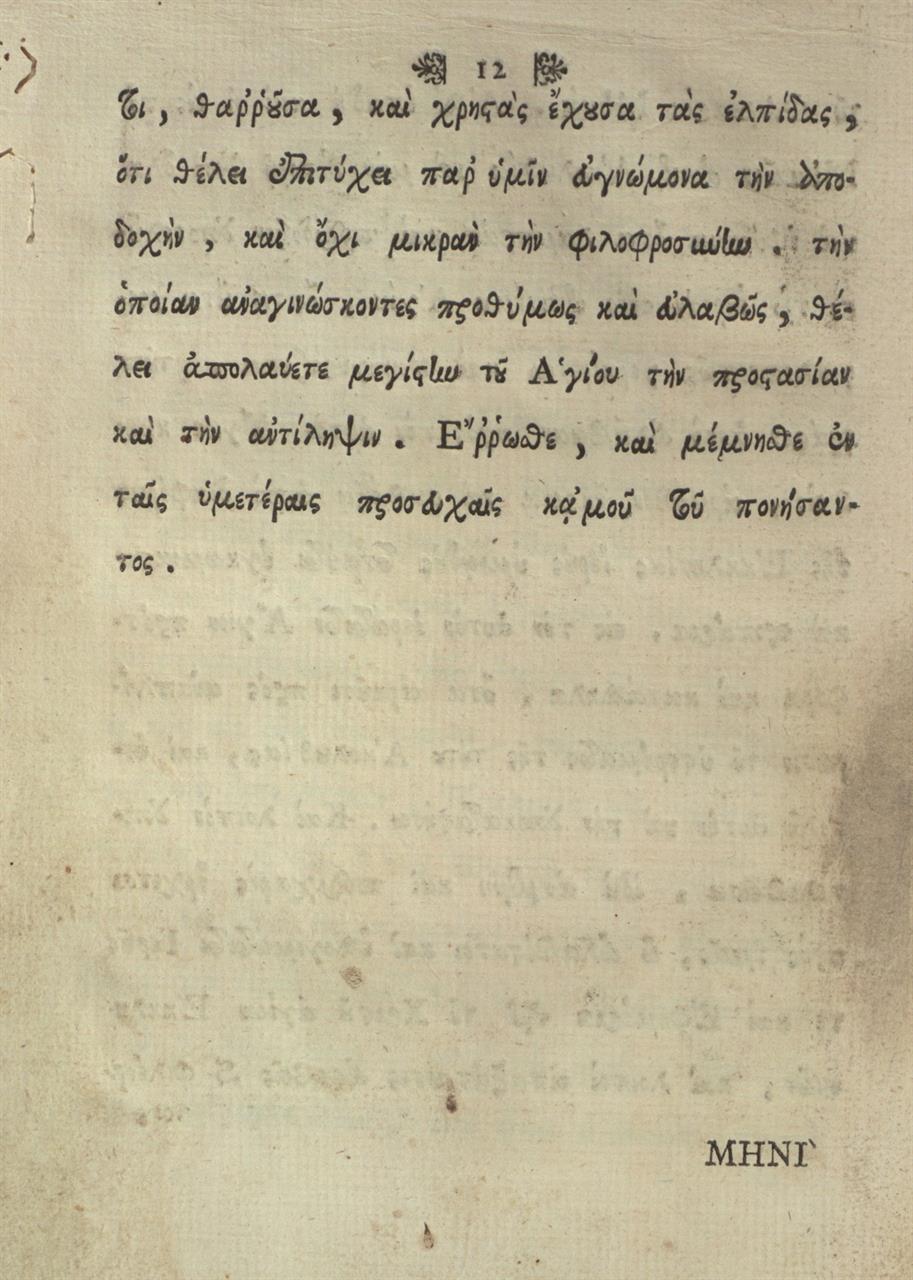 12
τι, θαῤῥοῦσα, καὶ χρηϛὰς ἔχουσα τὰς ἐλπίδας,
ὅτι θέλει ἐπιτύχει παρ' ὑμῖν εὐγνώμονα τὴν ὑπο-
δοχὴν, καὶ ὄχι μικρὰν τὴν φιλοφροσύνην. τὴν
ὁποίαν ἀναγινώσκοντες προθύμως καὶ εὐλαβῶς, θέ-
λει ἀπολαύετε μεγίϛην τοῦ Ἁγίου τὴν προϛασίαν
καὶ τὴν ἀντίληψιν. Ἔῤῥωσθε, καὶ μέμνησθε ἐν
ταῖς ὑμετέραις προσευχαῖς κᾀμοῦ τοῦ πονήσαν-
τος.
ΜΗΝΙ`